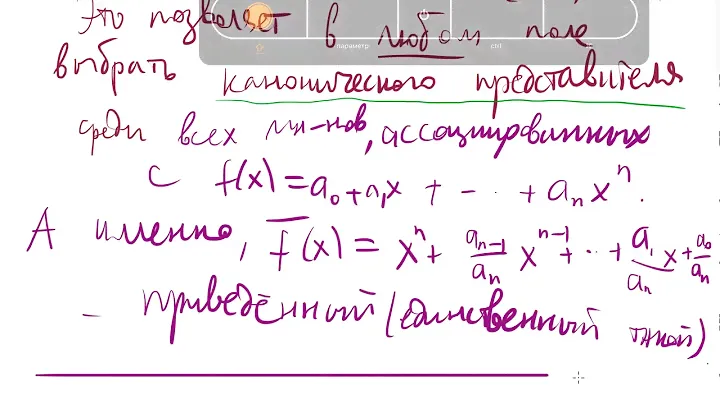 Это позволяет в любом поле
параметр ctrl
выбрать канонического представителя
среди всех мн-нов, ассоциированных
с f(x) = a₀ + a₁x + - ·· + aₙxⁿ.
А именно, f̅(x) = xⁿ + aₙ₋₁/aₙ xⁿ⁻¹ + ·· + a₁/aₙ x + a₀/aₙ
– приведённый (единственный такой)